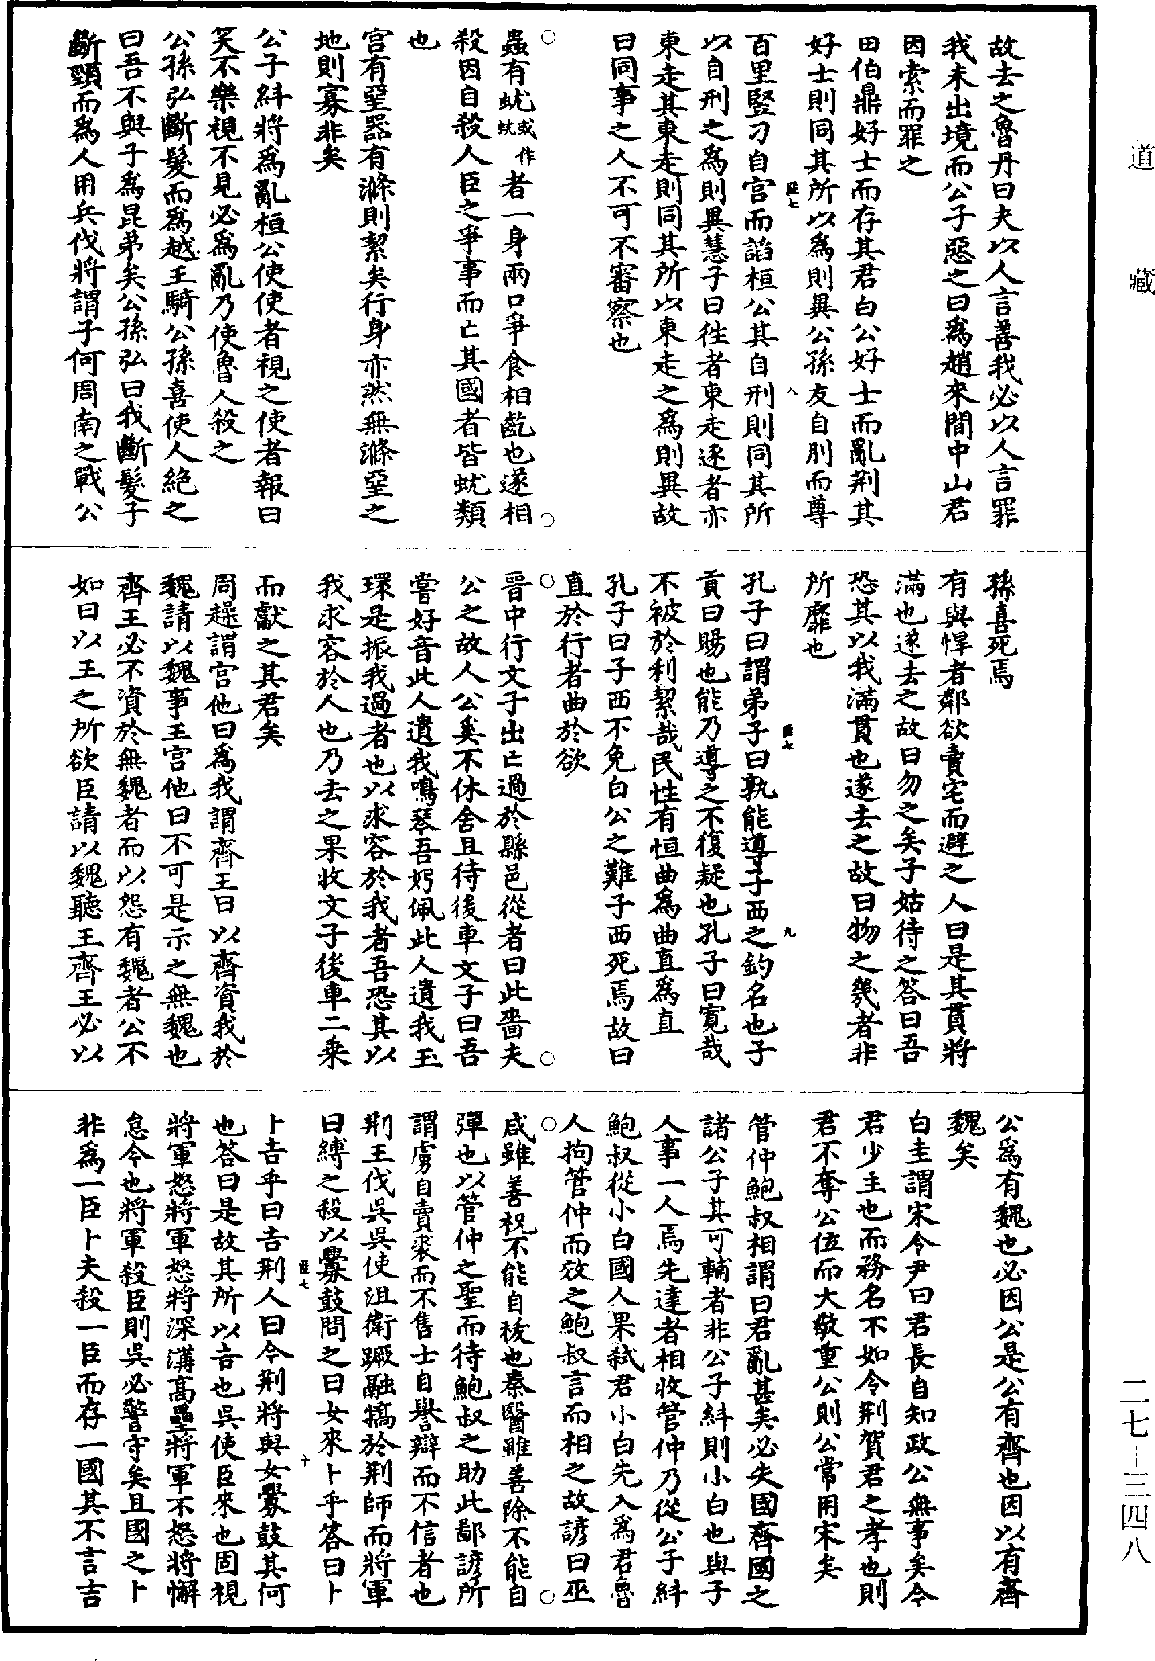 道藏
故去之魯丹曰夫以人言善我必以人言罪
我未出境而公子惡之曰爲趙來間中山君
因索而罪之
田伯鼎好士而存其君白公好士而亂荆其
好士則同其所以爲則異公孫友自刖而尊
百里豎刁自宮而諂桓公其自刑則同其所
以自刑之爲則異慧子曰徃者東走逐者亦
東走其東走則同其所以東走之爲則異故
曰同事之人不可不審察也
○蟲有蚘或作蚘者一身兩口爭食相齕也遂相○
殺因自殺人臣之爭事而亡其國者皆蚘類
也
宮有堊器有滌則絜矣行身亦然無滌堊之
地則寡非矣
公子紏將爲亂桓公使使者視之使者報曰
笑不樂視不見必爲亂乃使魯人殺之
公孫弘斷髮而爲越王騎公孫喜使人絶之
曰吾不與子爲昆弟矣公孫弘曰我斷髮子
斷頸而爲人用兵伐將謂子何周南之戰公
孫喜死焉
有與悍者鄰欲賣宅而避之人曰是其貫將
滿也遂去之故曰勿之矣子姑待之答曰吾
恐其以我滿貫也遂去之故曰物之幾者非
所靡也
孔子曰謂弟子曰孰能導子西之釣名也子
貢曰賜也能乃導之不復疑也孔子曰寛哉
不被於利絜哉民性有恒曲爲曲直爲直
孔子曰子西不免白公之難子西死焉故曰
直於行者曲於欲
○晋中行文子出亡過於縣邑從者曰此嗇夫○
公之故人公奚不休舍且待後車文子曰吾
嘗好音此人遺我鳴琴吾好佩此人遺我玉
環是振我過者也以求容於我者吾恐其以
我求容於人也乃去之果收文子後車二乘
而獻之其君矣
周趮謂宮他曰爲我謂齊王曰以齊資我於
魏請以魏事王宮他曰不可是示之無魏也
齊王必不資於無魏者而以怨有魏者公不
如曰以王之所欲臣請以魏聽王齊王必以
公爲有魏也必因公是公有齊也因以有齊
魏矣
白圭謂宋令尹曰君長自知政公無事矣今
君少主也而務名不如令荆賀君之孝也則
君不奪公位而大敬重公則公常用宋矣
管仲鮑叔相謂曰君亂甚矣必失國齊國之
諸公子其可輔者非公子紏則小白也與子
人事一人焉先達者相收管仲乃從公子紏
鮑叔從小白國人果弑君小白先入爲君魯
人拘管仲而效之鮑叔言而相之故諺曰巫
○咸雖善祝不能自袚也秦醫雖善除不能自○
彈也以管仲之聖而待鮑叔之助此鄙諺所
謂虜自賣裘而不售士自譽辯而不信者也
荆王伐吳吳使沮衛蹶融犒於荆師而將軍
曰縛之殺以釁鼓問之曰女來卜乎答曰卜
卜吉乎曰吉荆人曰今荆將與女釁鼓其何
也答曰是故其所以吉也吳使臣來也固視
將軍怒將軍怒將深溝高壘將軍不怒將懈
怠今也將軍殺臣則吳必警守矣且國之卜
非爲一臣卜夫殺一臣而存一國其不言吉
二七-三四八